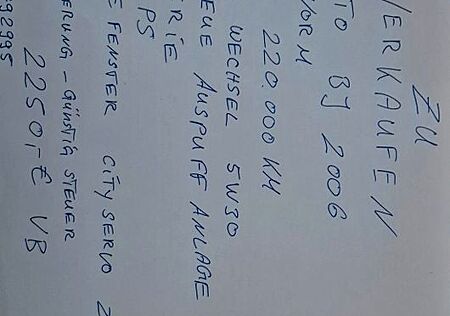 ZU
VERKAUFEN
TO BJ 2006
ORM
220.000 KM
WECHSEL 5W30
EUE AUSPUFF ANLAGE
ERIE
PS
E FENSTER CITY SERVO Z
ERUNG - GÜNSTIG STEUER
2250,-€ VB
92995